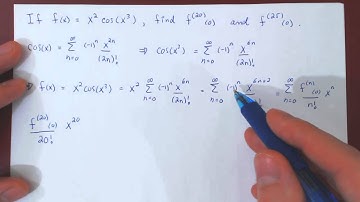 If f(x) = x² cos(x³), find f⁽²⁰⁾(0) and f⁽²⁵⁾(0).
cos(x) = ∑_{n=0}^{∞} (-1)ⁿ x²ⁿ/(2n)! ⇒ cos(x³) = ∑_{n=0}^{∞} (-1)ⁿ x⁶ⁿ/(2n)!
⇒ f(x) = x² cos(x³) = x² ∑_{n=0}^{∞} (-1)ⁿ x⁶ⁿ/(2n)! = ∑_{n=0}^{∞} (-1)ⁿ x⁶ⁿ⁺²/ n)! = ∑_{n=0}^{∞} f⁽ⁿ⁾(0)/n! xⁿ
f⁽²⁰⁾(0)/20! x²⁰